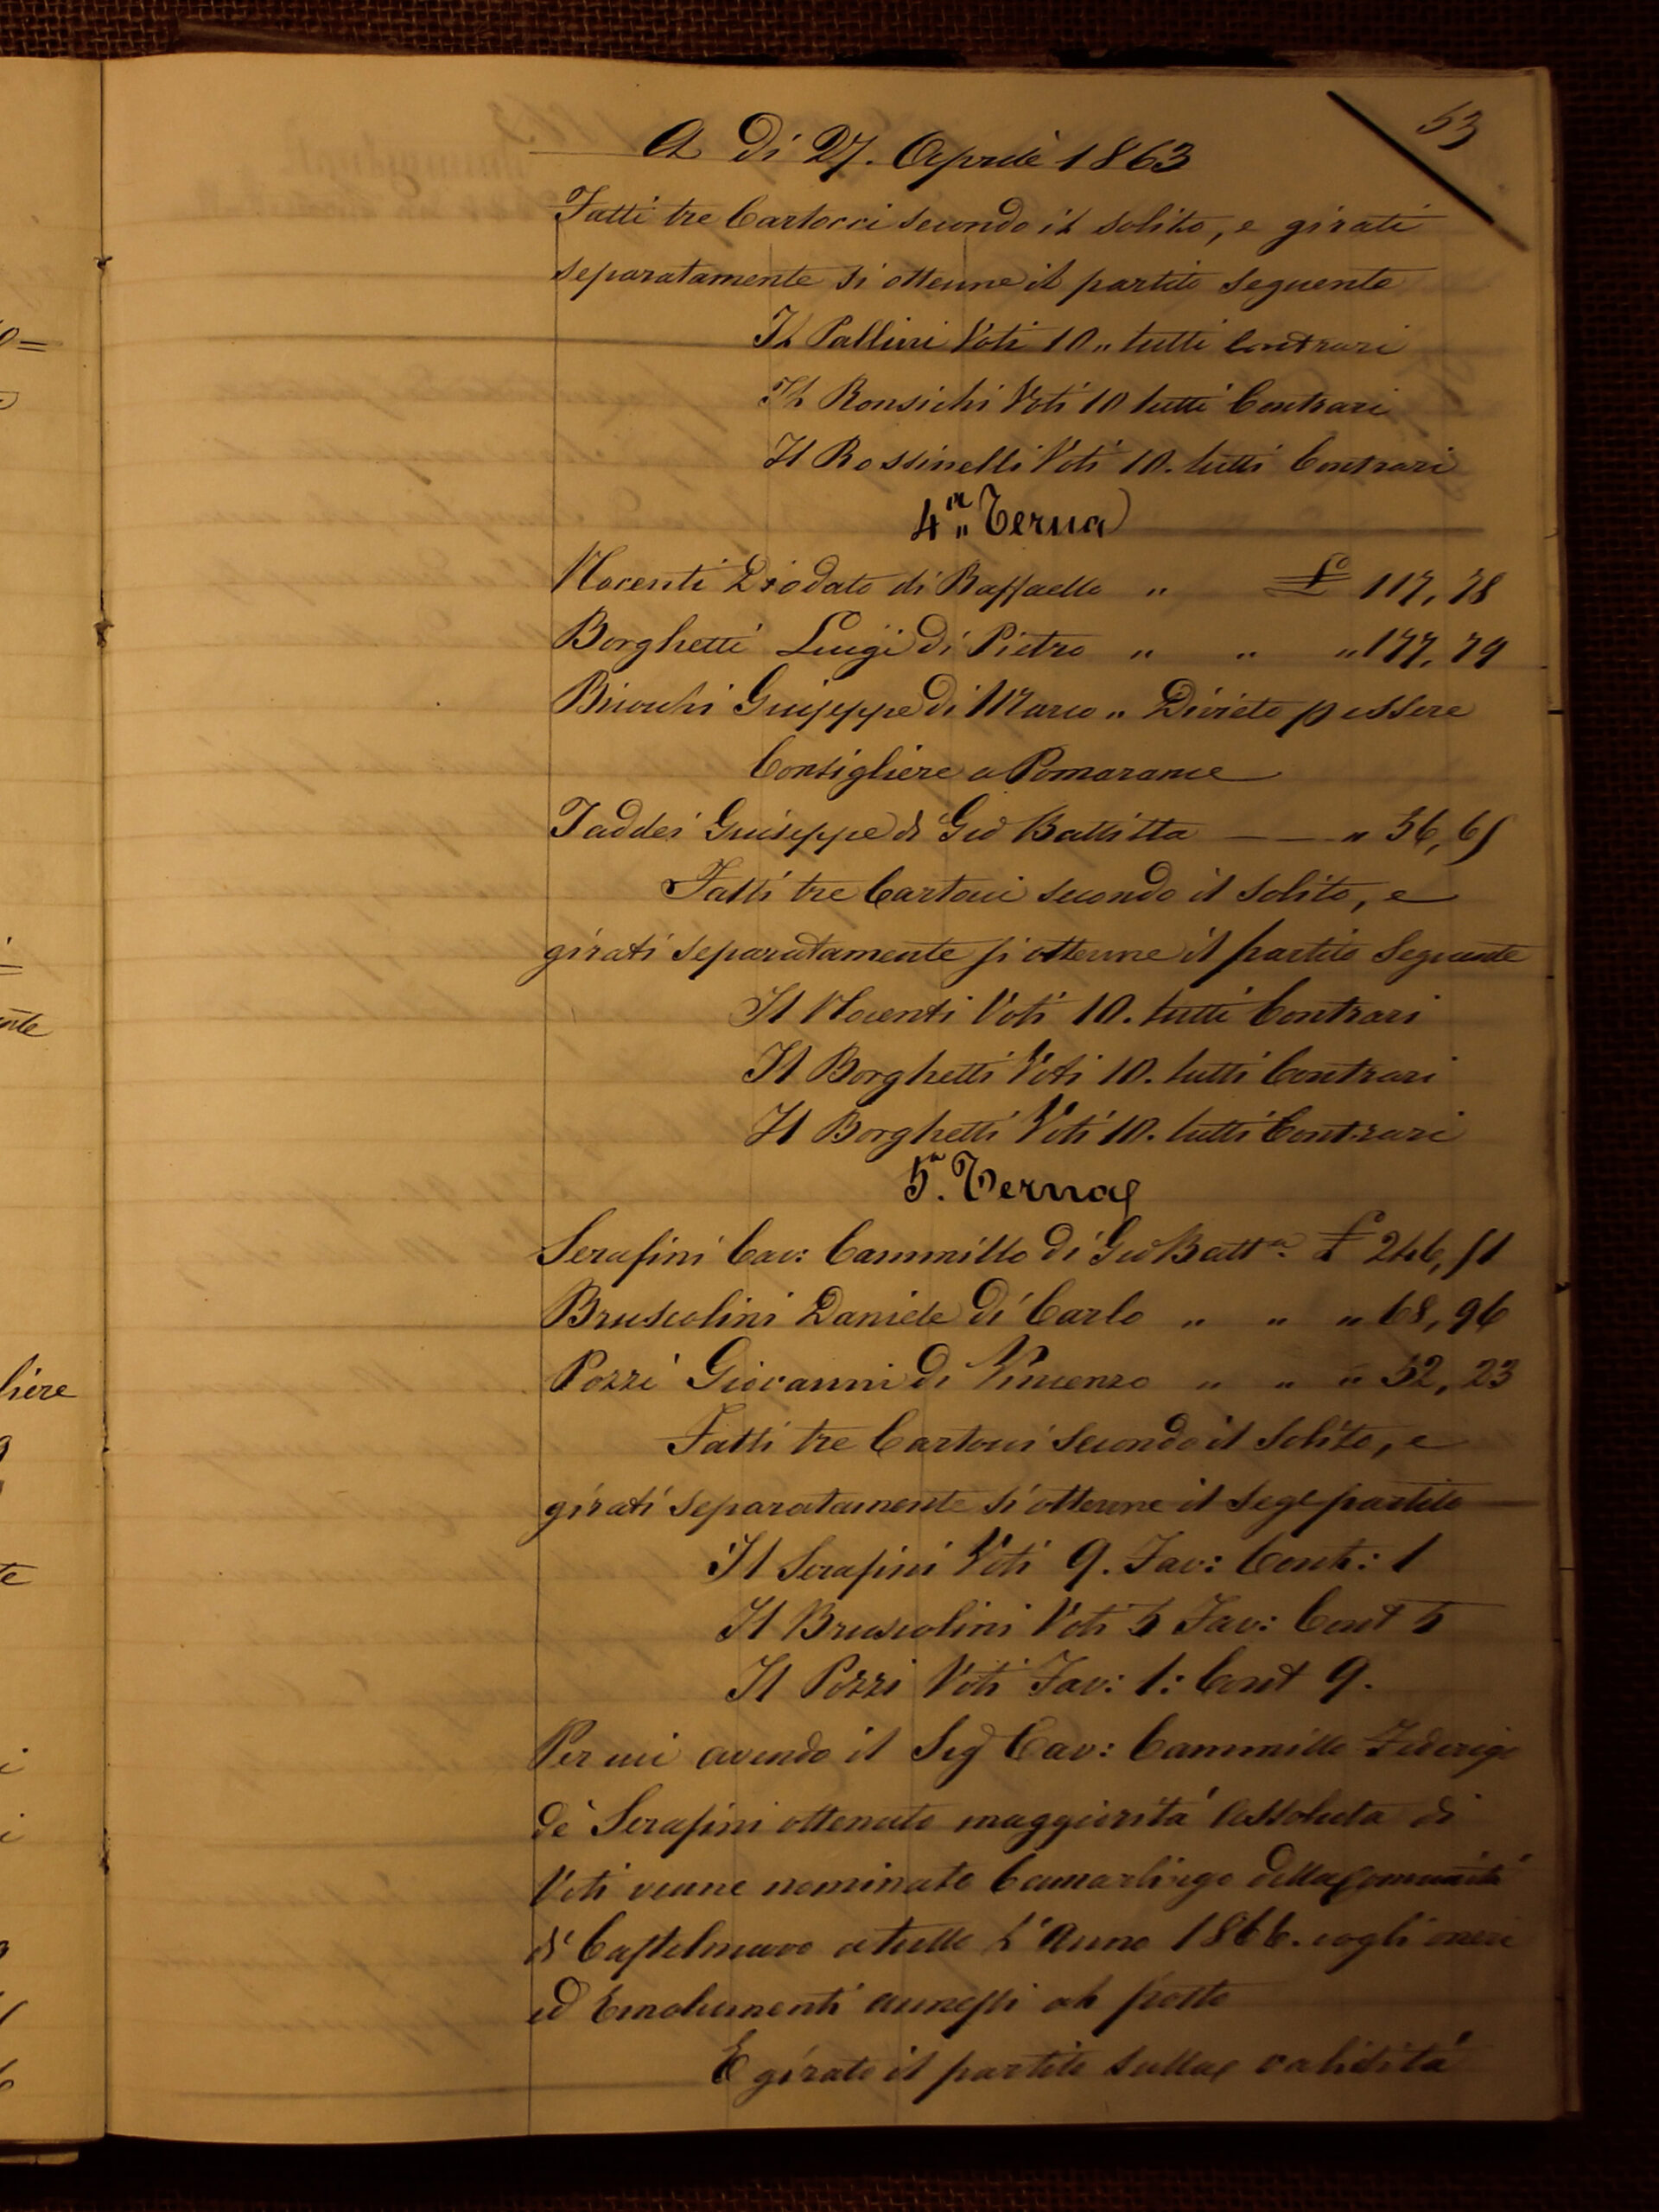 53
A Dì 27. Aprile 1863
Fatti tre Cartocci secondo il solito, e girati
separatamente si ottenne il partito seguente
Il Pallini Voti 10 „ tutti Contrari
Il Ronsichi Voti 10 tutti Contrari
Il Rossinelli Voti 10. tutti Contrari
4.a „ Terna
Nocenti Diodato di Raffaello „ £ 117, 78
Borghetti Luigi di Pietro „ „ „ 177, 79
Giuseppe di Marco „ Divieto p essere
Consigliere a Pomarance
Taddei Giuseppe di Gio Battitta — „ 56, 61
Fatti tre Cartocci secondo il solito, e
girati separatamente si ottenne il partito seguente
Il Nocenti Voti 10. tutti Contrari
Il Borghetti Voti 10. tutti Contrari
Il Borghetti Voti 10. tutti Contrari
5.a Terna
Serafini Cav: Cammillo di Gio Batta. £ 246, 51
Bruscolini Daniele di Carlo „ „ „ 68, 96
Pozzi Giovanni di Vincenzo „ „ „ 52, 23
Fatti tre Cartocci secondo il solito, e
girati separatamente si ottenne il sege partito
Il Serafini Voti 9. Fav: Cont: 1
Il Bruscolini Voti 5 Fav: Cont 5
Il Pozzi Voti Fav: 1: Cont 9.
Per cui avendo il Sig Cav: Cammillo Federigo
de Serafini ottenuto maggiorità assoluta di
Voti venne nominato Camarlingo della Comunità
di Castelnuovo a tutto L'Anno 1866. cogli oneri
ed Emolumenti annessi al posto
E girato il partito sulla validità
liere